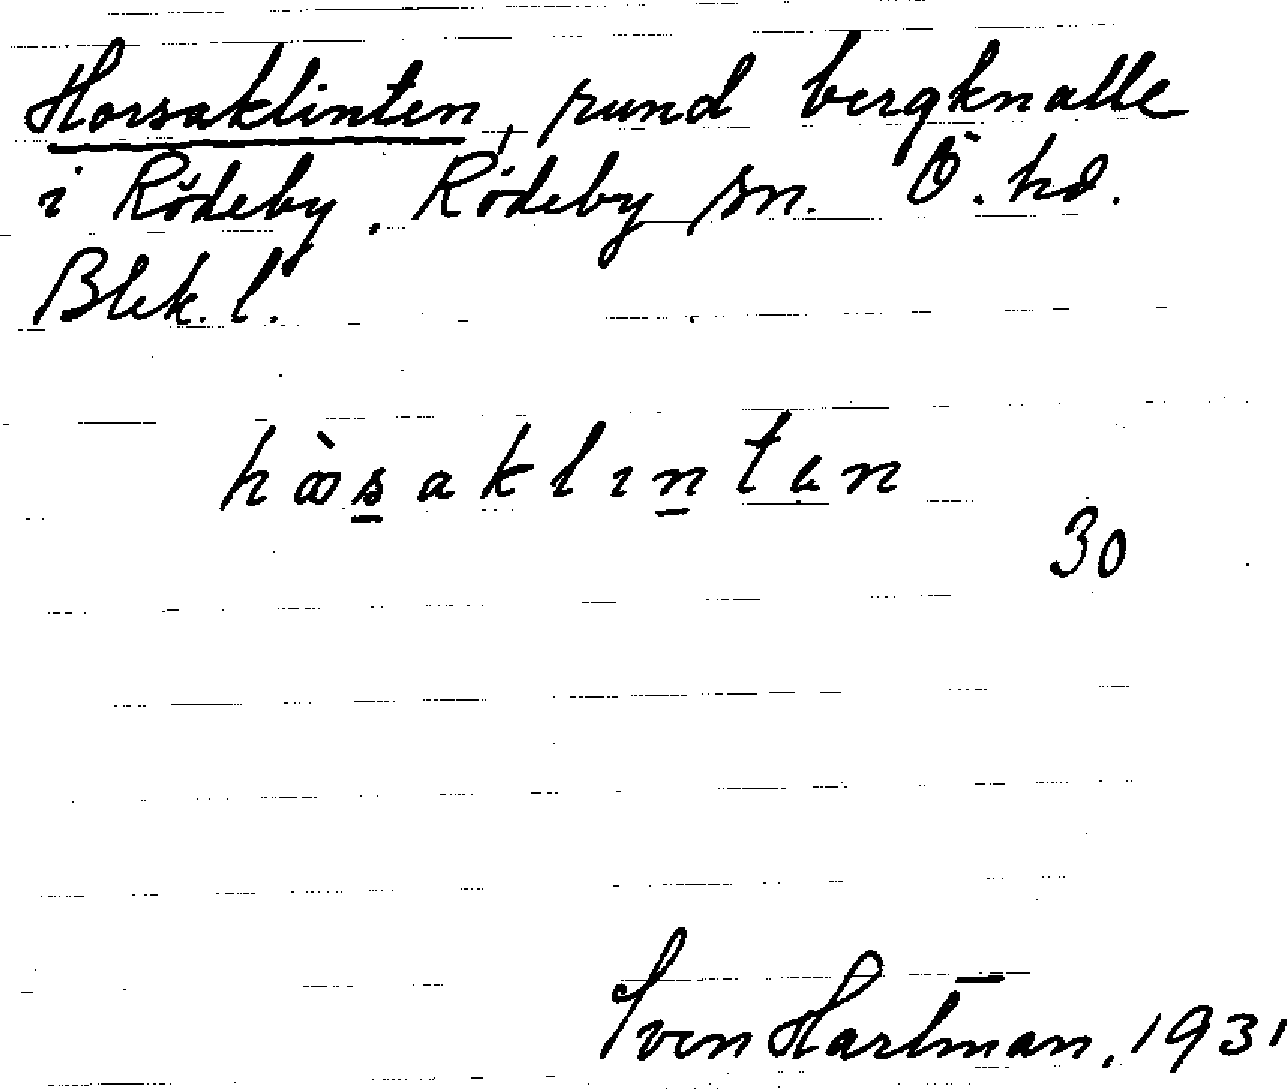 Horsaklinten, rund bergknalle
i Rödeby, Rödeby sn. Ö. hd.
Blek. l.
hòsaklınten
30
Sven Hartman, 1931